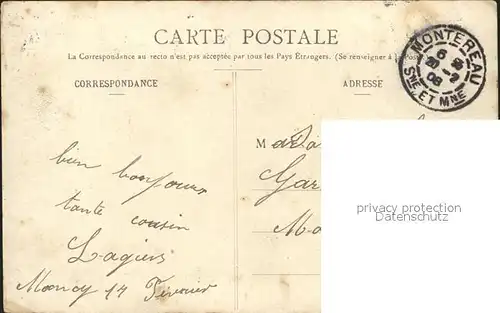 CARTE POSTALE
La Correspondance au recto n'est pas acceptée par tous les Pays Étrangers. (Se renseigner à la Poste
CORRESPONDANCE
ADRESSE
MONTEREAU
6
20 - 2
08
SNE ET MNE
M
Gar
Ma
bien bonjour
tante cousin
Lagiers
14 Fevrier
privacy protection
Datenschutz